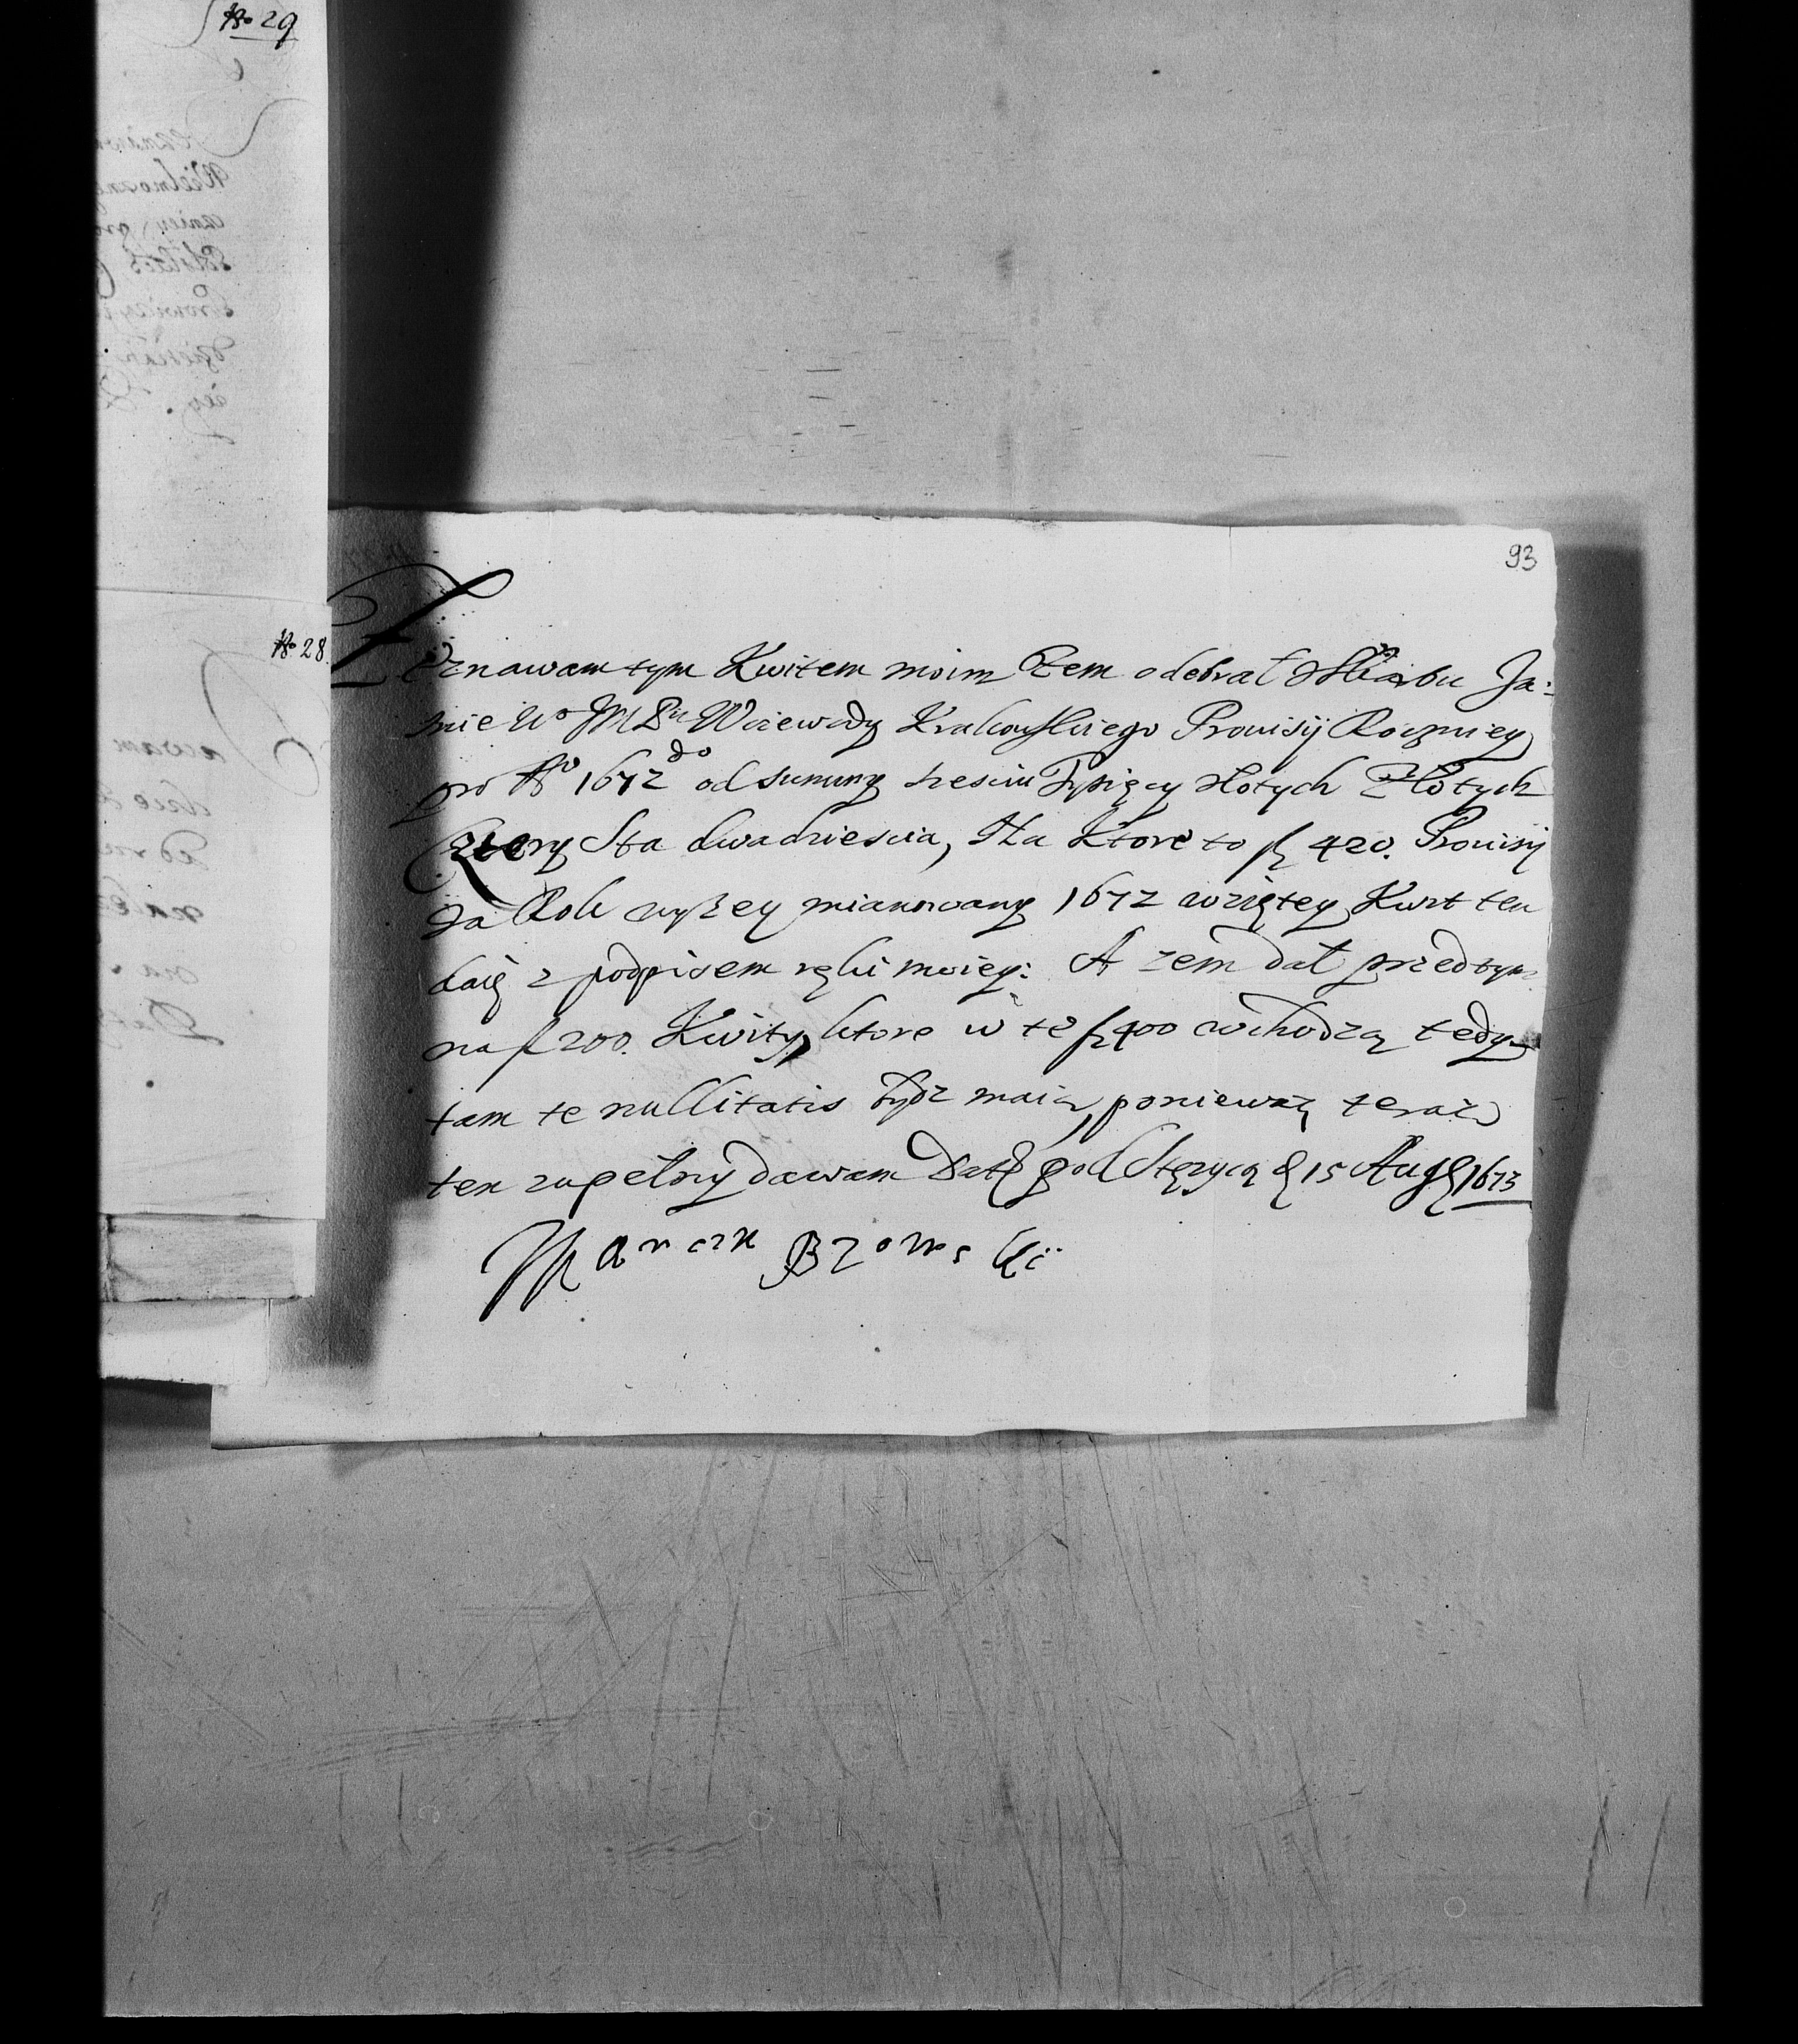 No 29
No 28.
93
Zeznawam tym Kwitem moim Żem odebrał z Skarbu Ja:
snie Wo JM Pn Woiewody Krakowskiego Prouisij Roczney
pro Ao 1672do od summy szesciu Tysięcy złotych Złotych
Cztery Sta dwadziescia, Na Ktore to fl 420. Prouisij
za Rok wyżey mianowany 1672 wziętey Kwit ten
daię z podpisem ręki moiey: A zem dał przedtym
na f 200. Kwity, ktore w te fl 400 wchodzą tedy
tam te nullitatis bydz maią, poniewaz teraz
ten zupełny dawam Dat pod Stęzycą d 15 Aug 1673
Marcin Brows kii